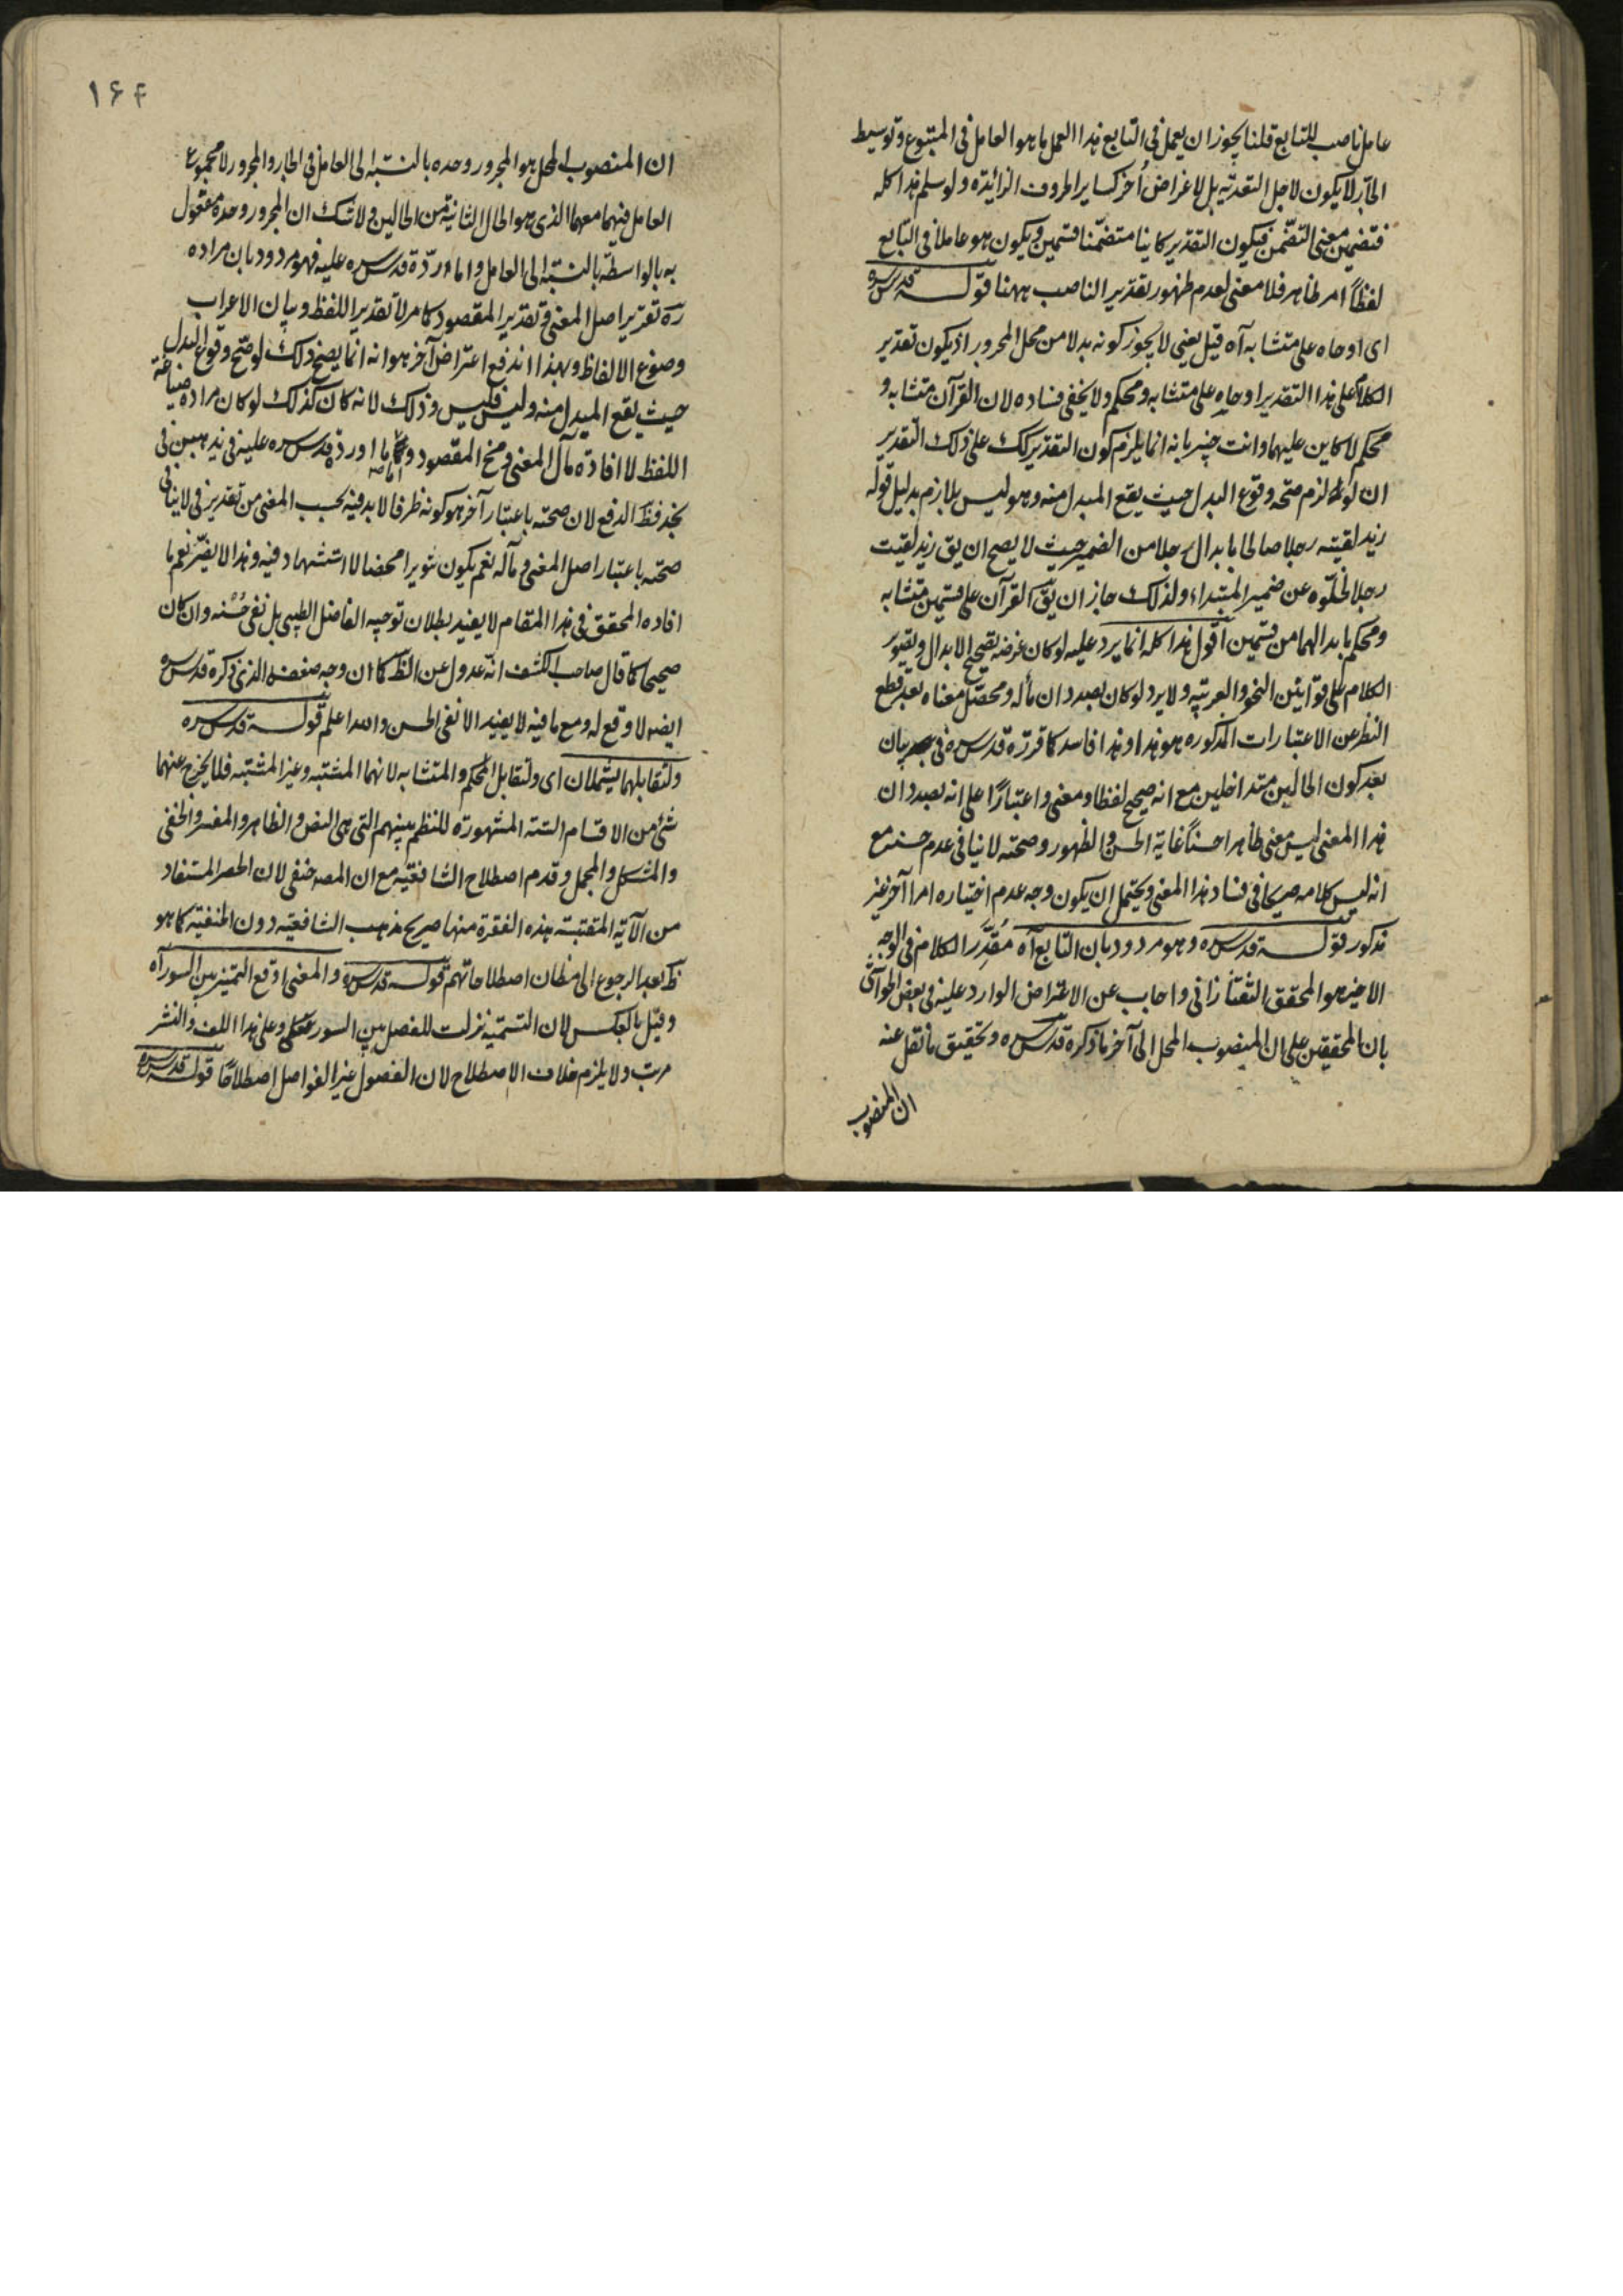 عامل ناصب للتابع قلنا يجوز ان يعمل فى التابع هذا العمل ما هو العامل فى المتبوع وتوسيط
الجار لا يكون لاجل التعدية بل لاغراض أخر كساير الحروف الزائدة ولو سلم هذا كله
فتضمين معنى التضمن فيكون التقدير كاينا متضمنا قسمين ويكون هو عاملا فى التابع
لفظاً امر ظاهر فلا معنى لعدم ظهور تقدير الناصب ههنا قولــه قدس سره
اى اوحاه على متشابه آه قيل يعنى لا يجوز كونه بدلا من محل المجرور اذ يكون تقدير
الكلام على هذا التقدير اوحاه على متشابه ومحكم ولا يخفى فساده لان القرآن متشابه و
محكم لا كاين عليهما وانت خبير بانه انما يلزم كون التقدير كك على ذلك التقدير
ان لو لزم صحة وقوع البدل حيث يقع المبدل منه وهو ليس بلازم بدليل قوله
زيد لقيته رجلا صالحا بابدال رجلا من الضمير حيث لا يصح ان يق زيد لقيت
رجلا لخلوه عن ضمير المبتداء ولذلك جاز ان يق القرآن على قسمين متشابه
ومحكم بابدالهما من قسمين اقول هذا كله انما يرد عليه لو كان غرضه تصحيح الابدال وتصوير
الكلام على قوانين النحو والعربية ولا يرد لو كان بصدد ان مآله ومحصل معناه بعد قطع
النظر عن الاعتبارات المذكوره هو هذا وهذا فاسد كما قرره قدس سره فى بيان
بعد كون الحالين متداخلين مع انه صحيح لفظا ومعنى واعتبارًا على انه بصدد ان
هذا المعنى ليس معنى ظاهرا حسناً غاية الحسن والظهور وصحته لا ينافى عدم حسنه مع
انه ليس كلامه صريحا فى فساد هذا المعنى ويحتمل ان يكون وجه عدم اختياره امرا آخر غير
مذكور قولــه قدس سره وهو مردود بان التابع آه مُقَرِّر الكلام فى الوجه
الاخير هو المحقق التفتازانى واجاب عن الاعتراض الوارد عليه فى بعض الحواشى
بان المحققين على ان المنصوب المحل الى آخر ما ذكره قدس سره وتحقيق ما نقل عنه
ان المنصوب
١۶۴
ان المنصوب المحل هو المجرور وحده بالنسبة الى العامل فى الجار والمجرور لا مجموع
العامل فيهما معهما الذى هو الحال الثانية من الحالين ولا شك ان المجرور وحده مفعول
به بالواسطة بالنسبة الى العامل واما ردّه قدس سره عليه فهو مردود بان مراده
ره تقرير اصل المعنى وتقدير المقصود كما مر لا تقدير اللفظ وبيان الاعراب
وصوغ الالفاظ وبهذا اندفع اعتراض آخر هو انه انما يصح ذلك لو صح وقوع البدل
حيث يقع المبدل منه وليس فليس وذلك لانه كان كذلك لو كان مراده صياغة
اللفظ لا افادة مآل المعنى ومخ المقصود و ما اورده قدس سره عليه فى
فظ الدفع لان صحته باعتبار آخر هو كونه ظرفا لا بد فيه بحسب المعنى من تقدير فى لا ينافى
صحته باعتبار اصل المعنى ومآله نعم يكون تنويرا محضا لا استشهاد فيه وهذا لا يضر نعم ما
افاده المحقق فى هذا المقام لا يفيد بطلان توجيه الفاضل الطيبى بل نفى حُسْنه وان كان
صحيحا كما قال صاحب الكشف انه عدول عن الظ كما ان وجه ضعفه الذى ذكره قدس سره
ايضا لا وقع له ومع ما فيه لا يفيد الا نفى الحسن والله اعلم قولــه قدس سره
ولتقابلهما يشملان اى ولتقابل المحكم والمتشابه لانهما المشتبه وغير المشتبه فلا يخرج عنهما
شئ من الاقسام الستة المشهورة للنظم بينهم التى هى النص والظاهر والمفسر والخفى
والمشكل والمجمل وقدم اصطلاح الشافعية مع ان المصه حنفى لان الحصر المستفاد
من الآية المقتبسة هذه الفقرة منها صريح مذهب الشافعية دون الحنفية كما هو
ظ بعد الرجوع الى مظان اصطلاحاتهم قولــه قدس سره والمعنى اوقع التميز بين السور آه
وقيل بالعكس لان التسمية نزلت للفصل بين السور وعلى هذا اللف والنشر
مرتب ولا يلزم خلاف الاصطلاح لان الفصول غير الفواصل اصطلاحًا قولــه قدس سره